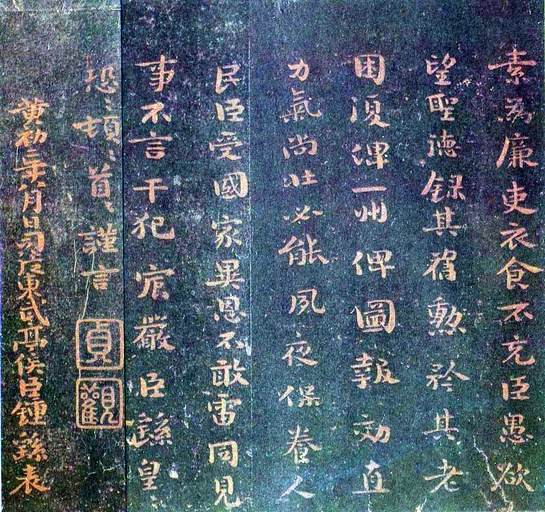 素爲廉吏衣食不充臣愚欲
望聖德録其舊勲矜其老
困復俾一州俾圖報効直
力氣尚壯必能夙夜保養人
民臣受國家異恩不敢雷同見
事不言干犯宸嚴臣繇皇
恐〻頓〻首〻謹言
貞觀
黃初二年八月日司徒東武亭侯臣鍾繇表